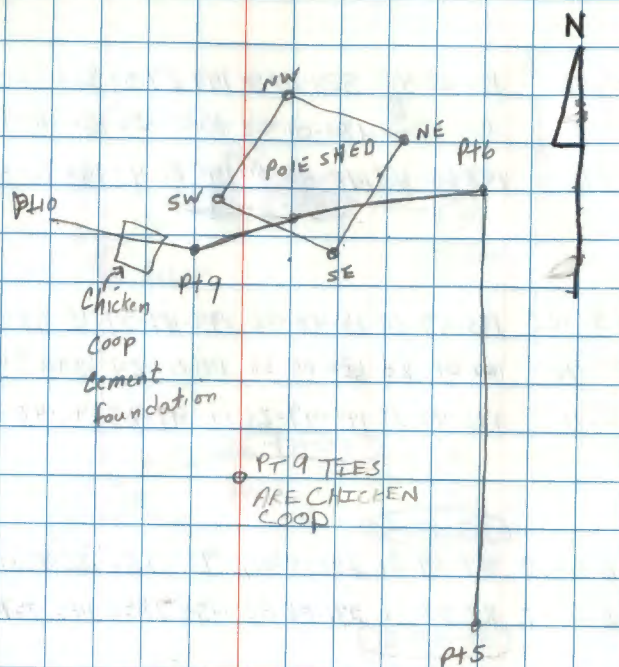 N
NW
NE
POLE SHED
Pt6
SW
Pt10
SE
Pt9
Chicken
Coop
Cement
foundation
PT 9 TIES
ARE CHICKEN
COOP
Pt5